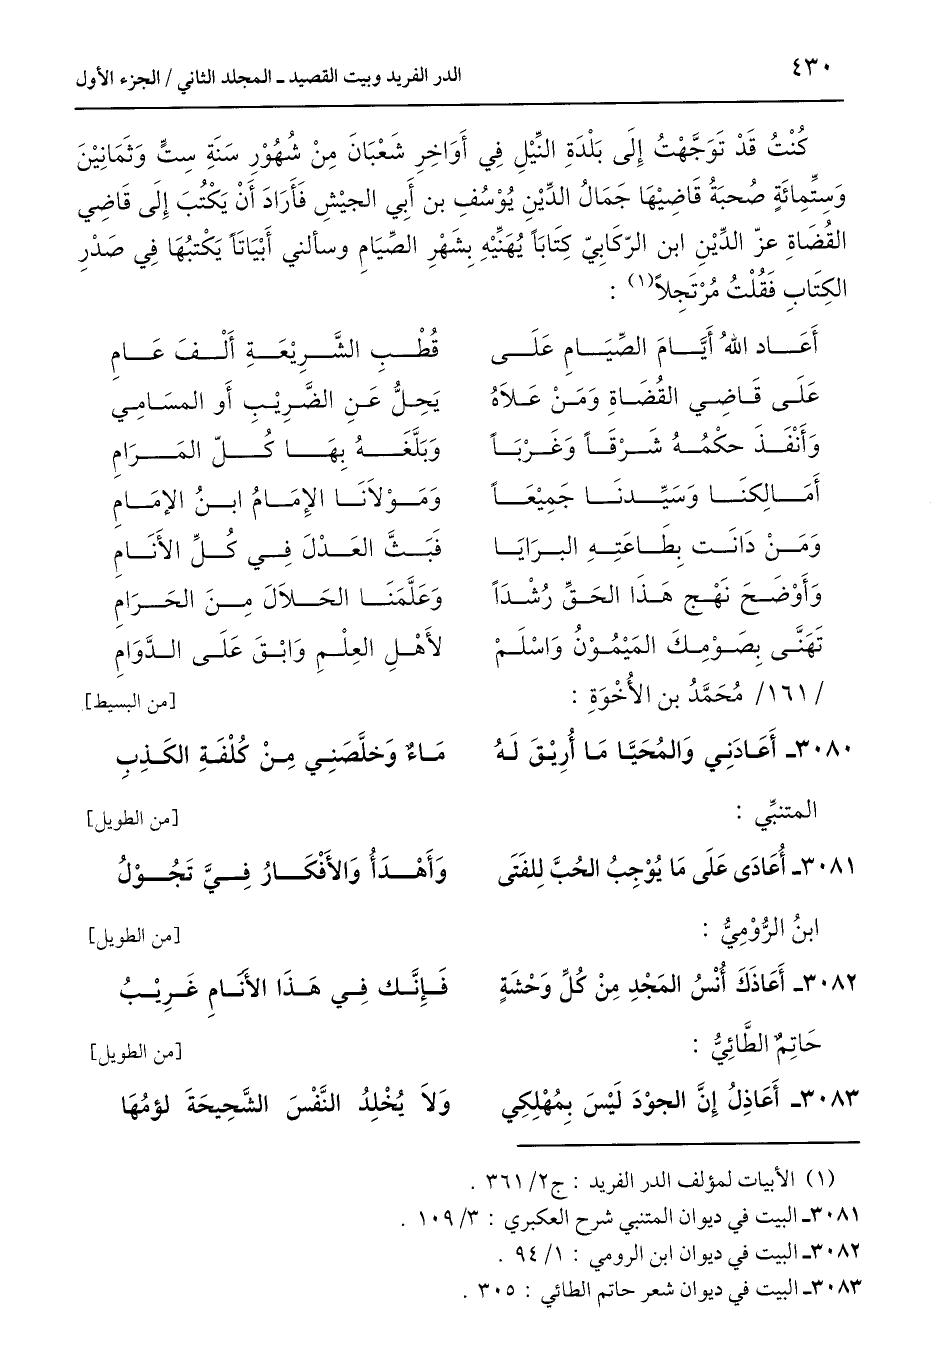 ٤٣٠ الدر الفريد وبيت القصيد ـ المجلد الثاني / الجزء الأول
كُنْتُ قَدْ تَوَجَّهْتُ إِلَى بَلْدَةِ النِّيْلِ فِي أَوَاخِرِ شَعْبَانَ مِنْ شُهُوْرِ سَنَةِ سِتٍّ وَثَمَانِيْنَ
وَسِتِّمِائَةٍ صُحبَةُ قَاضِيْهَا جَمَالُ الدِّيْنِ يُوْسُفِ بن أَبي الجَيْشِ فَأَرَادَ أَنْ يَكْتُبَ إِلَى قَاضِي
القُضَاةِ عزّ الدِّيْنِ ابن الرّكَابِيّ كِتَابَاً يُهَنِّيْهِ بِشَهْرِ الصِّيَامِ وسألني أَبْيَاتَاً يَكْتبُهَا فِي صَدْرِ
الكِتَابِ فَقُلْتُ مُرْتَجِلاً(١) :
أَعَـادَ اللهُ أَيَّـامَ الصِّيَـامِ عَلَـى قُطْـبِ الشَّـرِيْعَـةِ أَلْـفَ عَـامِ
عَلَـى قَـاضِـي القُضَـاةِ وَمَـنْ عَـلاَهُ يَجِـلُّ عَـنِ الضَّـرِيْـبِ أَو المسَـامِـي
وَأَنْفَـذَ حكمُـهُ شَـرْقَـاً وَغَـرْبَـاً وَبَلَّغَـهُ بِهَـا كُـلّ المَـرَامِ
أَمَـالِكنَـا وَسَيِّـدنَـا جَمِيْعَـاً وَمَـوْلاَنَـا الإمَـامُ ابـنُ الإمَـامِ
وَمَـنْ دَانَـت بِطَـاعَتِـهِ البـرَايَـا فَبَـثَّ العَـدْلَ فِـي كُـلِّ الأَنَـامِ
وَأَوْضَـحَ نَهْـج هَـذَا الحَـقِّ رُشْـدَاً وَعَلَّمَنَـا الحَـلاَلَ مِـنَ الحَـرَامِ
تَهَنَّـى بِصَـوْمِـكَ المَيْمُـوْنُ وَاسْلَـمْ لأَهْـلِ العِلْـمِ وَابْـقَ عَلَـى الـدَّوَامِ
/ ١٦١/ مُحَمَّدُ بن الأُخْوَةِ : [من البسيط]
٣٠٨٠ـ أَعَـادَنِي وَالمُحَيَّا مَا أُرِيْقَ لَـهُ مَـاءٌ وَخلَّصَنِـي مِـنْ كُلْفَـةِ الكَـذِبِ
المتنبِّي : [من الطويل]
٣٠٨١ـ أُعَادَى عَلَى مَا يُوْجِبُ الحُبَّ لِلفَتَى وَأَهْـدَأُ وَالأَفْكَـارُ فِـيَّ تَجُـوْلُ
ابنُ الرُّوْمِيُّ : [من الطويل]
٣٠٨٢ـ أَعَاذَكَ أُنْسُ المَجْدِ مِنْ كُلِّ وَحْشَةٍ فَـإِنَّـك فِـي هَـذَا الأَنَـامِ غَـرِيْـبُ
حَاتِمٌ الطَّائِيُّ : [من الطويل]
٣٠٨٣ـ أَعَاذِلُ إِنَّ الجوْدَ لَيْسَ بِمُهْلِكِي وَلاَ يُخْلِدُ النَّفْسَ الشَّحِيحَةَ لؤمُهَا
(١) الأبيات لمؤلف الدر الفريد : ج٢/ ٣٦١ .
٣٠٨١ـ البيت في ديوان المتنبي شرح العكبري : ٣/ ١٠٩ .
٣٠٨٢ـ البيت في ديوان ابن الرومي : ١/ ٩٤ .
٣٠٨٣ـ البيت في ديوان شعر حاتم الطائي : ٣٠٥ .